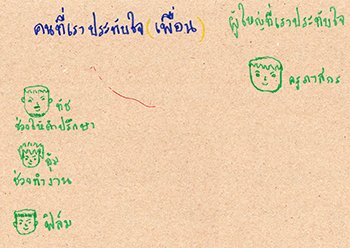 คนที่เราประทับใจ (เพื่อน)
ผู้ใหญ่ที่เราประทับใจ
ครูภาสกร
ทัช
ช่วยให้คำปรึกษา
อุ้ม
ช่วยทำงาน
ฟิล์ม